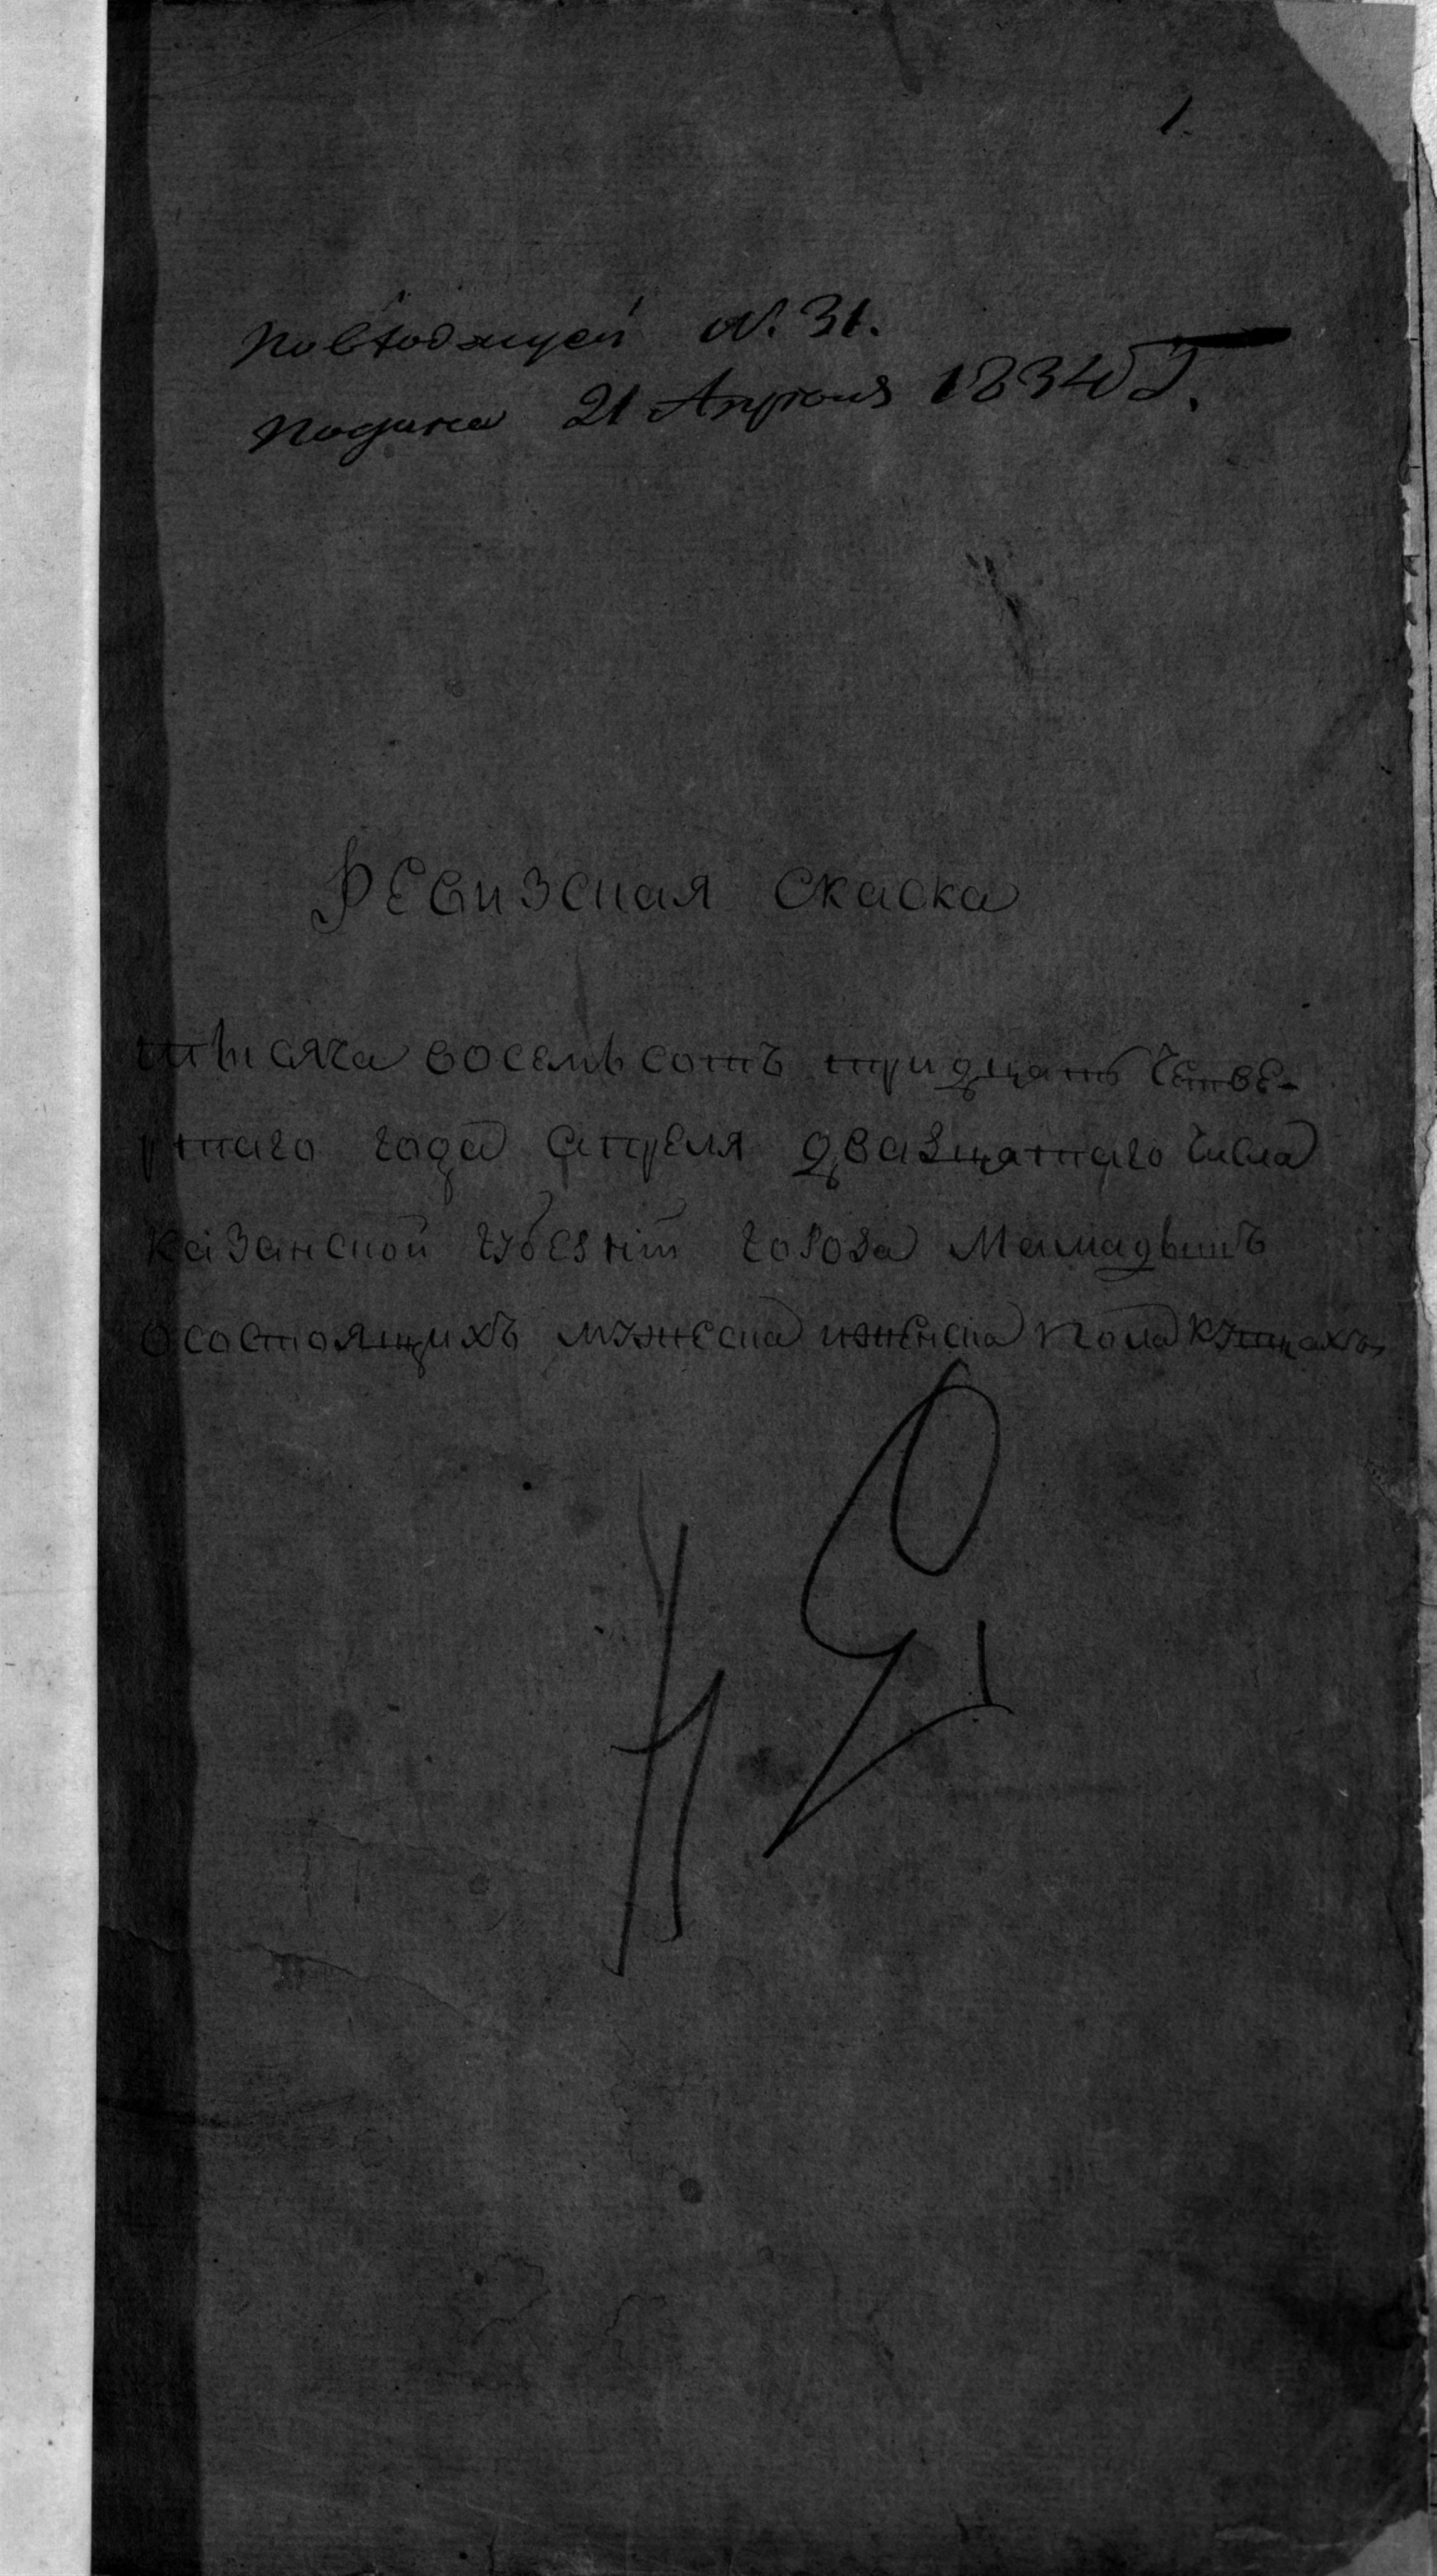 1.
По входящей N. 31.
Подана 21 Апреля 1834 Г.
Ревизская скаска
тысяча восемьсотъ тридцать четве-
ртаго года апреля двадцатаго числа
казанской губернiи города Мамадышъ
осостоящихъ мужеска иженска пола купцахъ